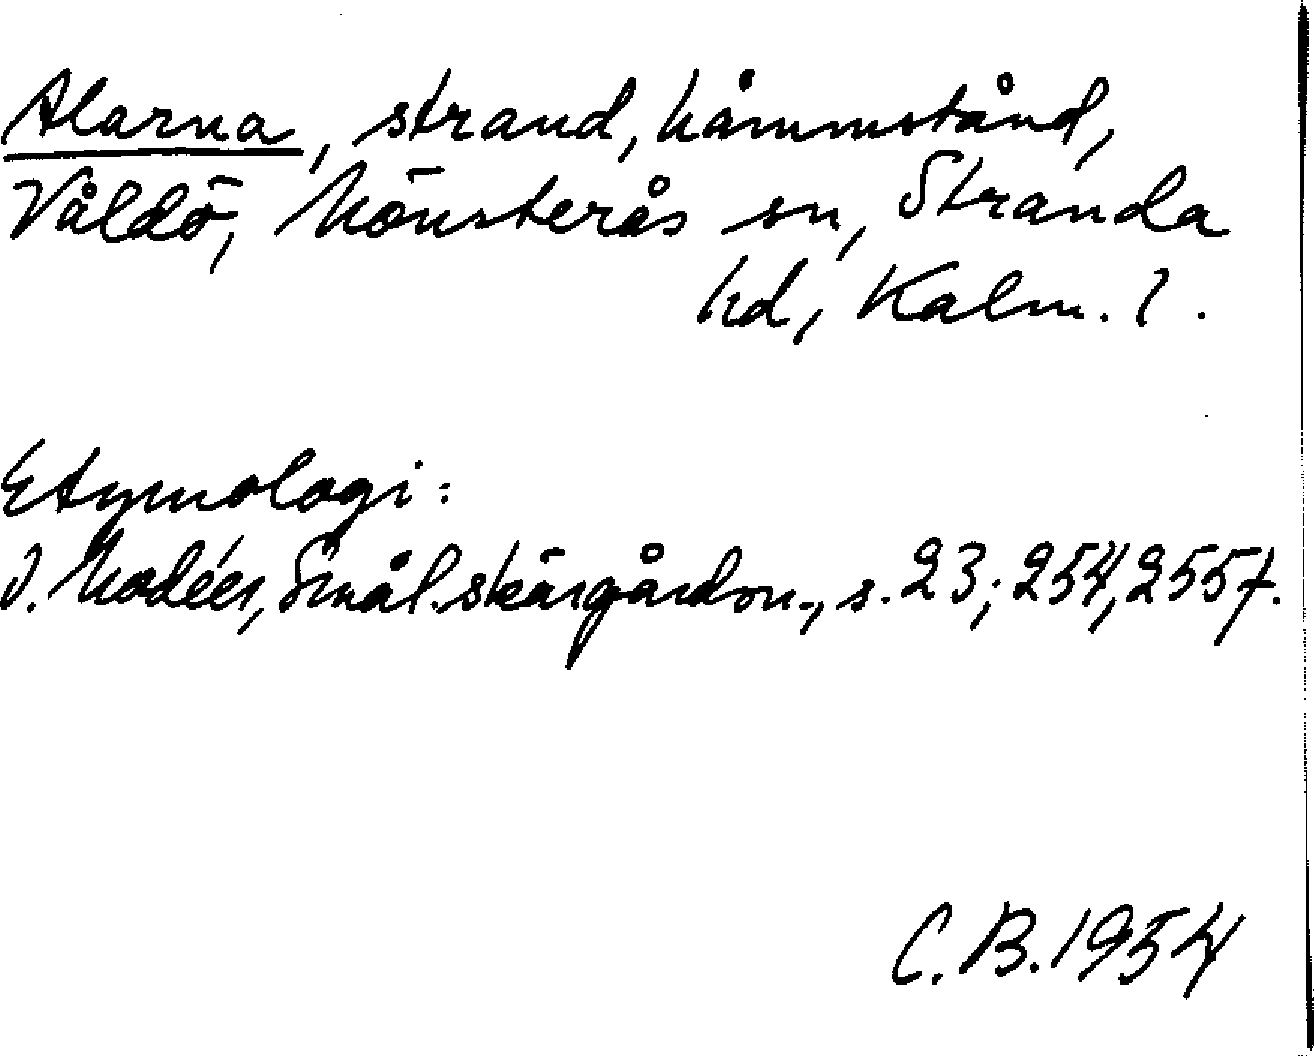 Alarna, strand,
Våldö, Mönsterås sn, Stranda
hd, Kalm. l.
Etymologi:
I. Modéer, Smål. skärgårdsn., s. 23; 254, 255f.
C. B. 1954